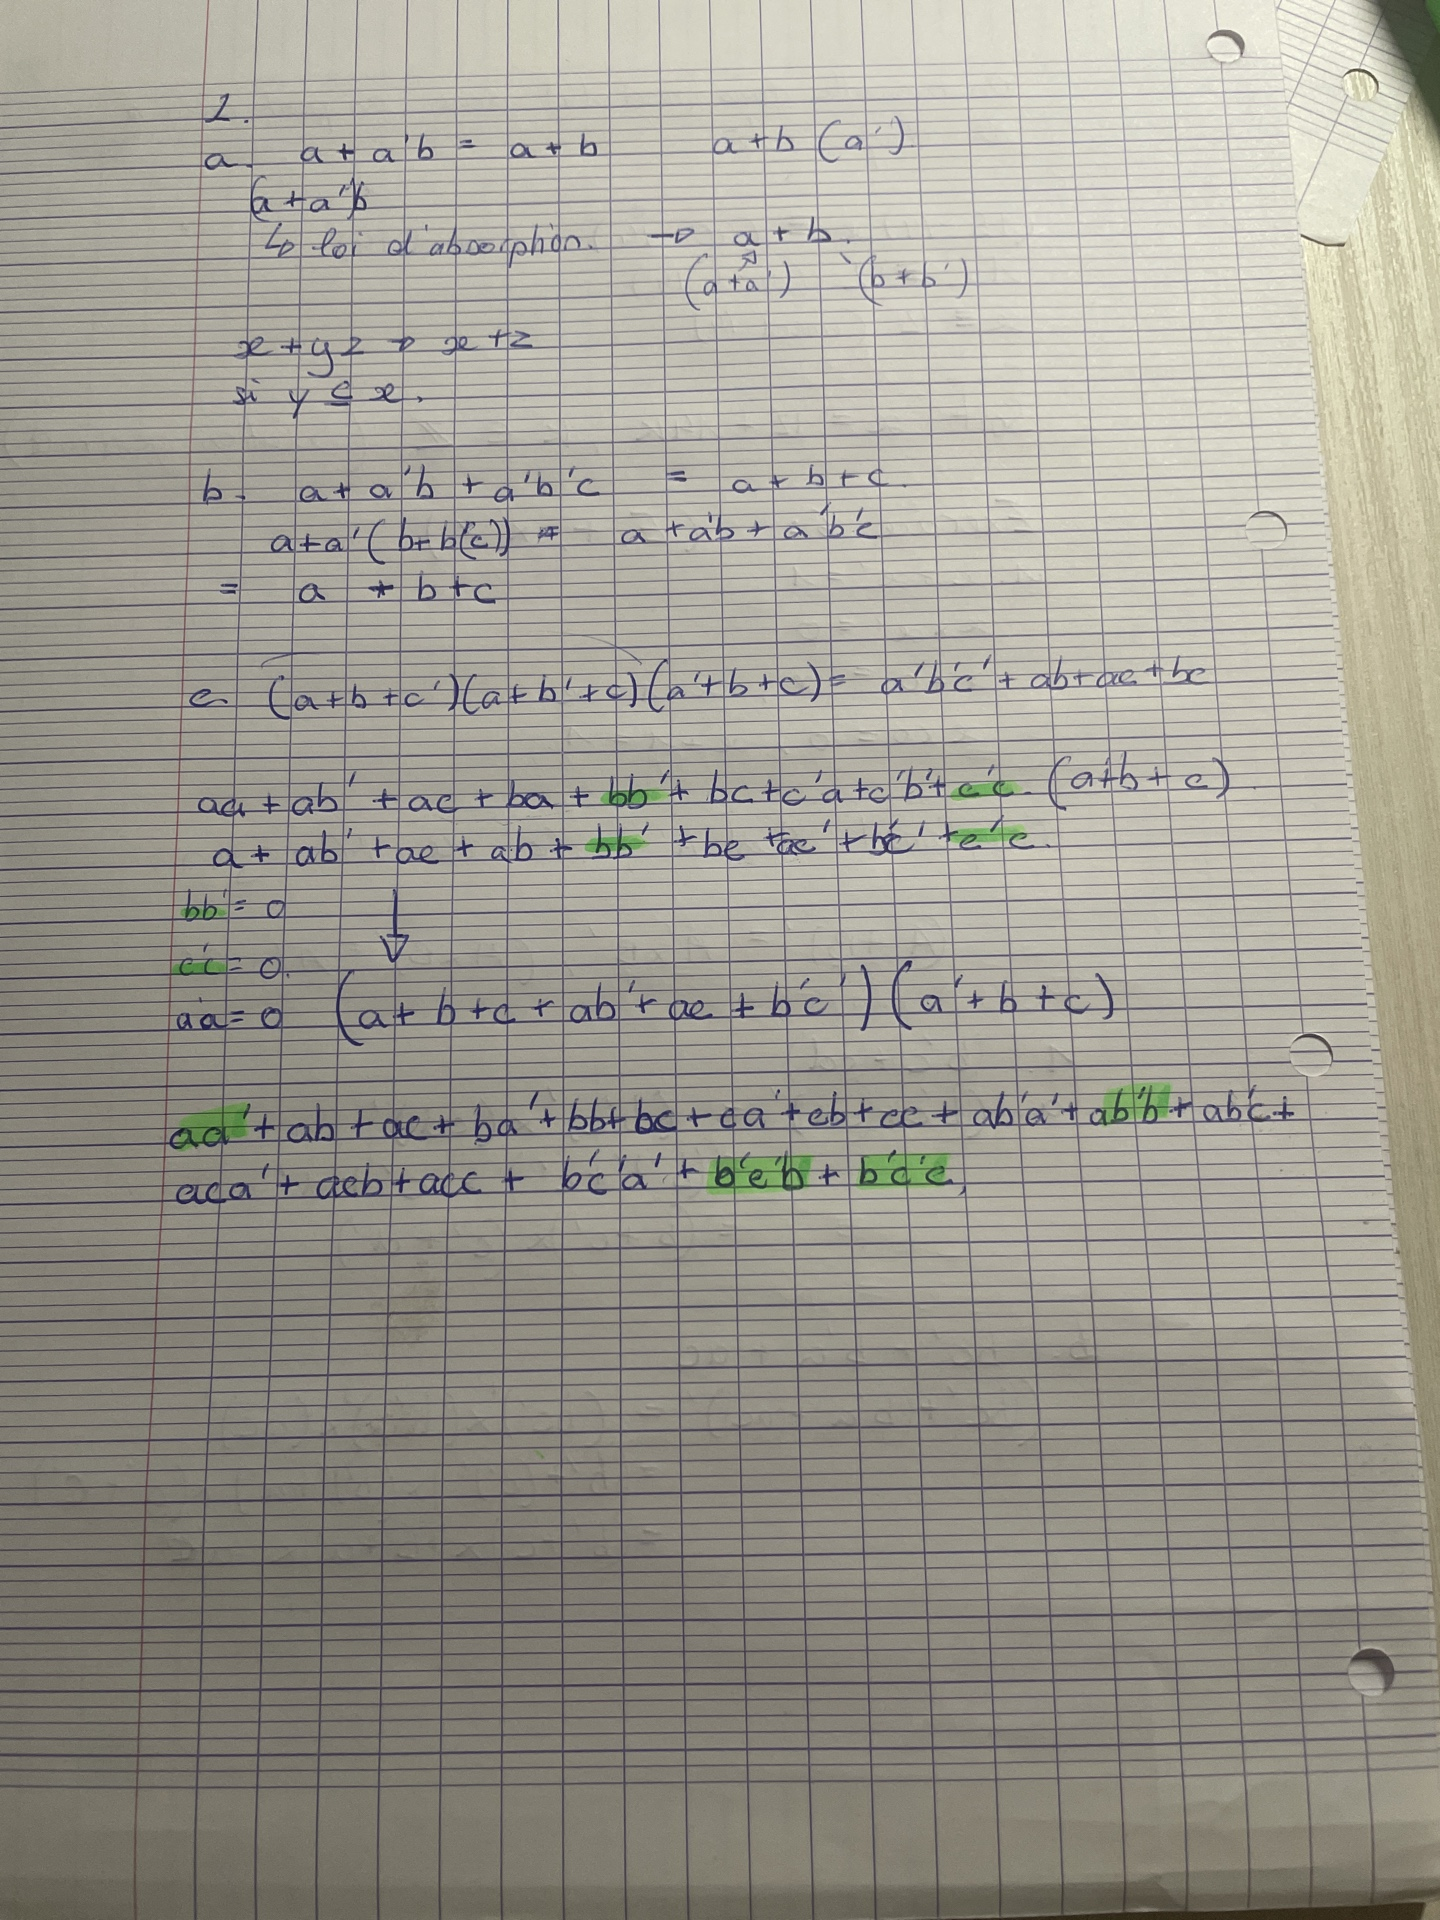 1.
a. a + a'b = a + b a + b (a')
(a + a')b
↳ loi d'absorption. → a + b.
(a + a') (b + b')
x + yz → x + z
si y ⊆ x.
b. a + a'b + a'b'c = a + b + c.
a + a' (b + b'(c)) = a + a'b + a'b'c
= a + b + c
c. (a + b + c')(a + b' + c)(a' + b + c) = a'b'c' + ab + ac + bc
aa + ab' + ac + ba + bb' + bc + c'a + c'b' + c'c. (a' + b + c)
a + ab' + ac + ab + bb' + bc + ac' + b'c' + c'c.
bb' = 0
c'c = 0.
a'a = 0 (a + b + c + ab' + ac + b'c') (a' + b + c)
aa' + ab + ac + ba' + bb + bc + ca' + cb + cc + ab'a' + ab'b + ab'c +
aca' + acb + acc + b'c'a' + b'c'b + b'c'c,